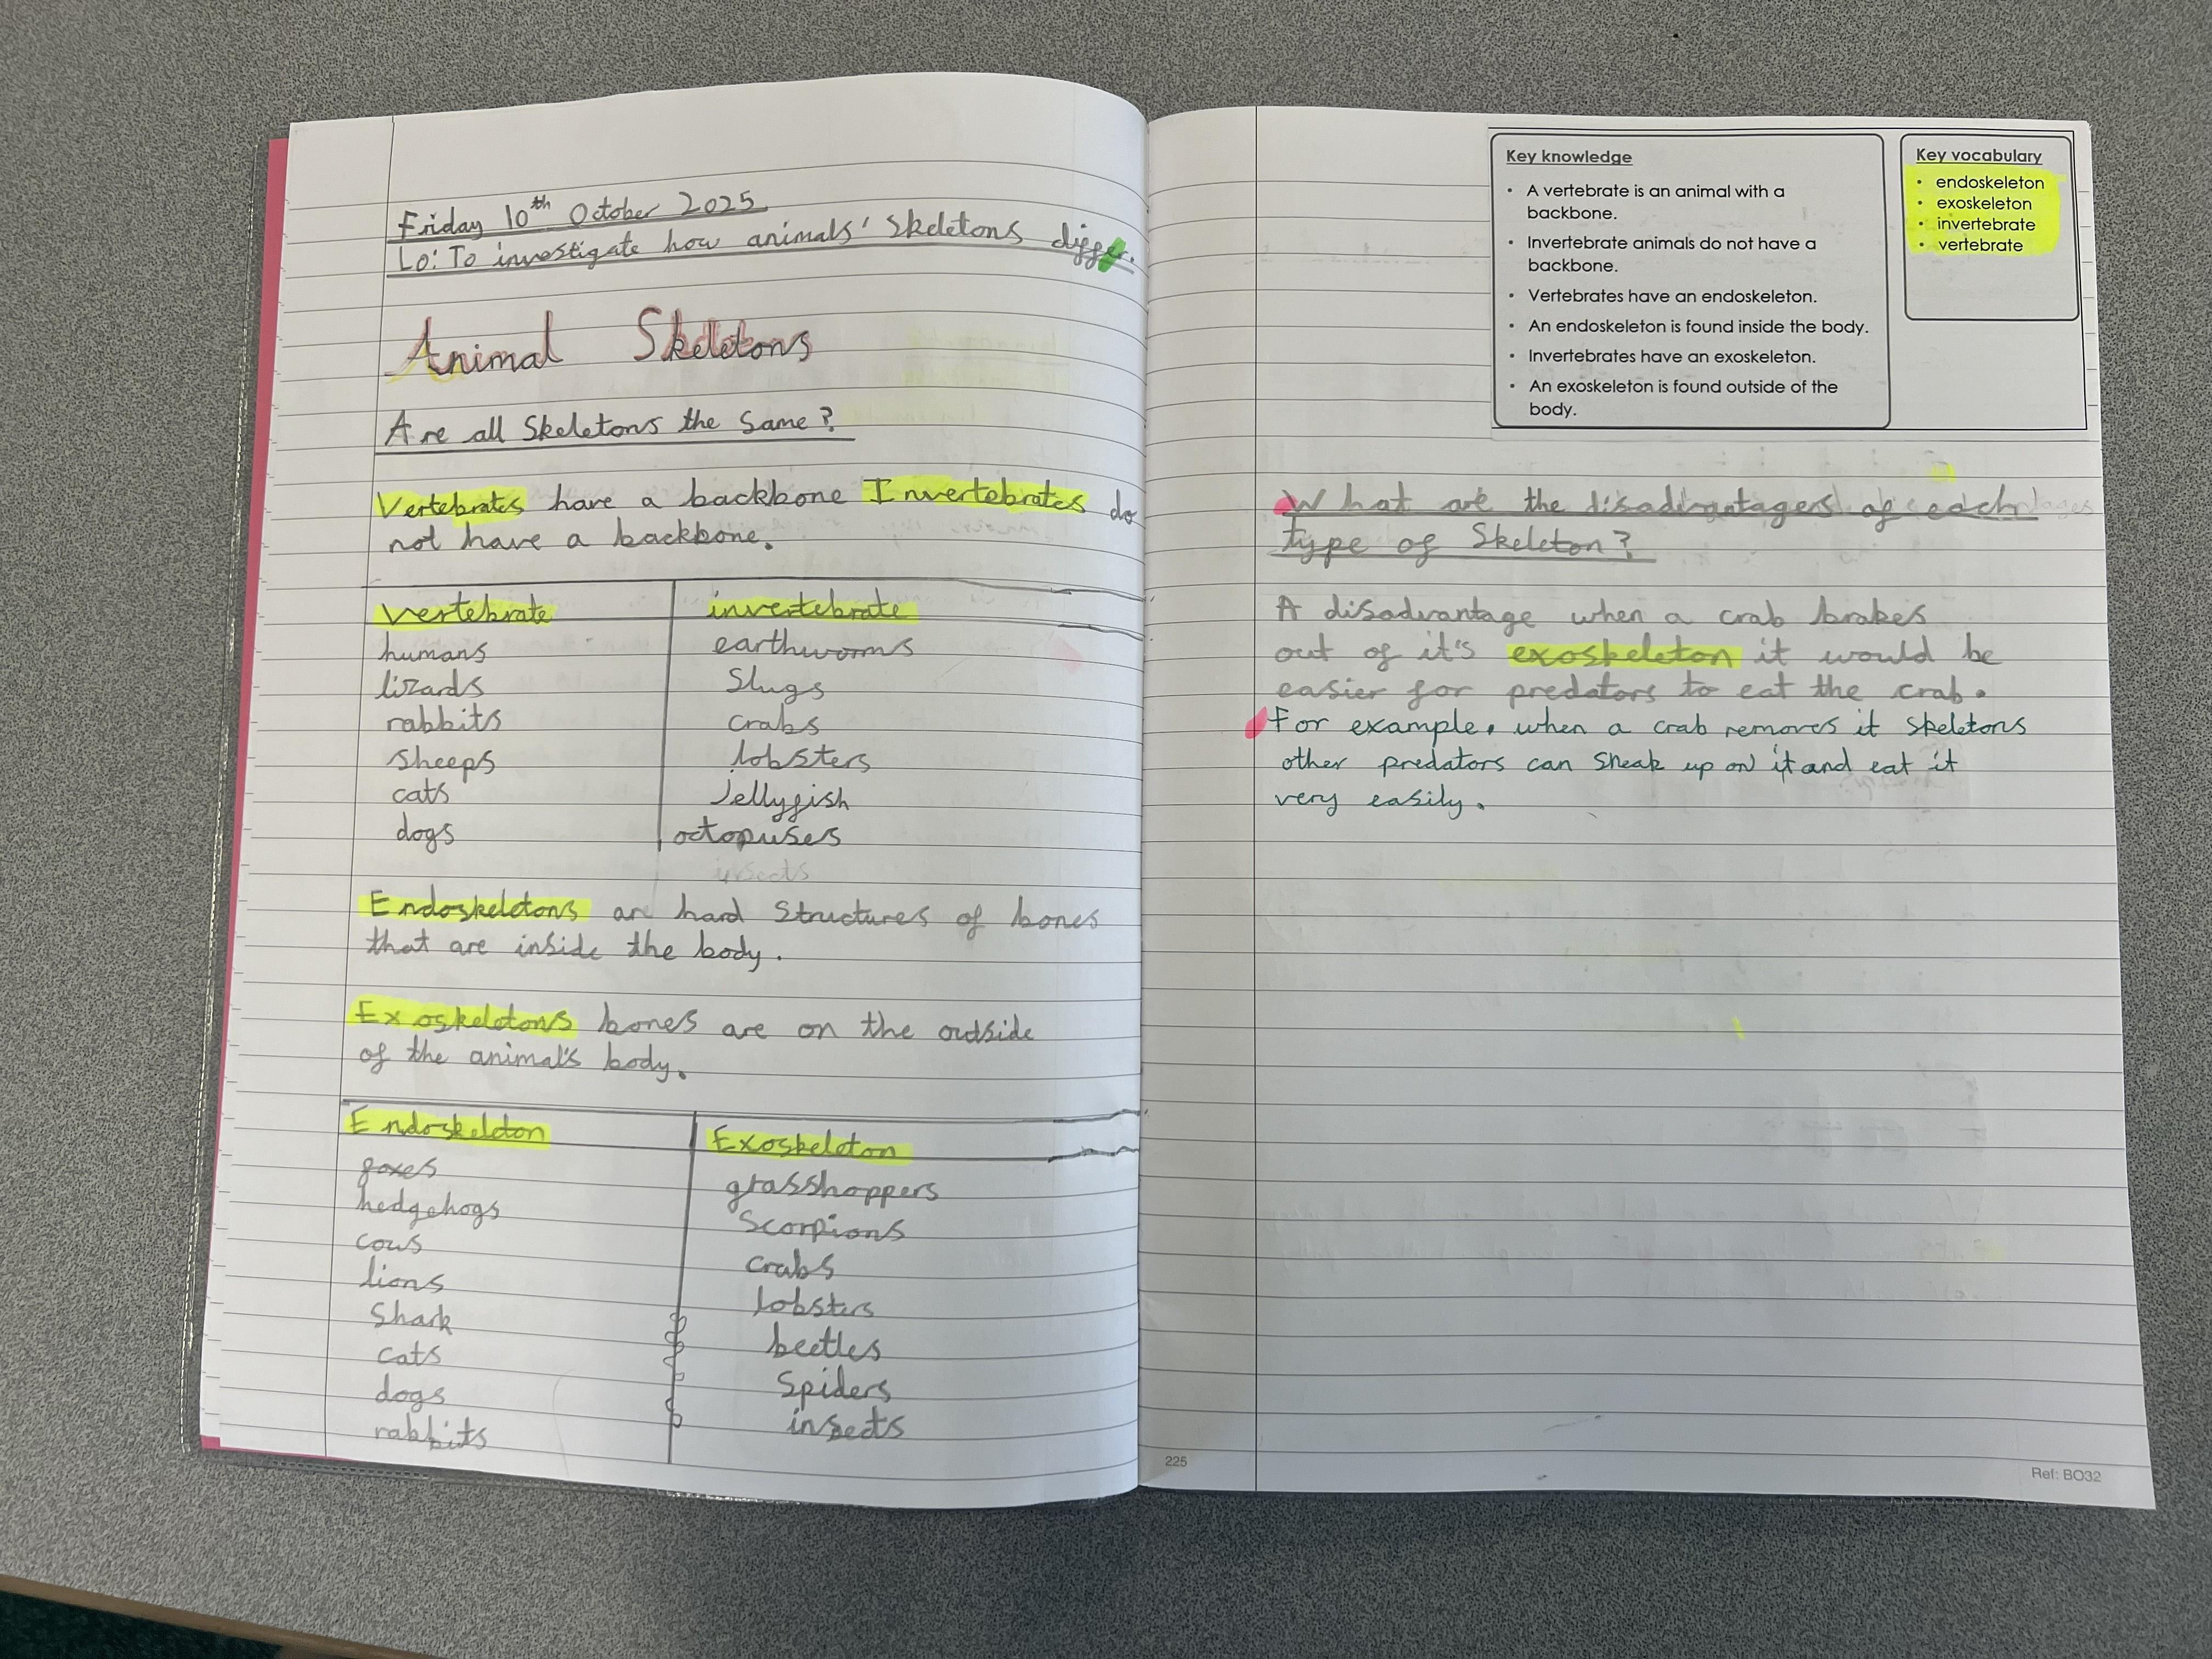 Friday 10th October 2025
Lo: To investigate how animals' skeletons differ.
Animal Skeletons
Are all skeletons the same?
Vertebrates have a backbone Invertebrates do
not have a backbone.
vertebrate invertebrate
humans earthworms
lizards slugs
rabbits crabs
sheeps lobsters
cats Jellyfish
dogs octopuses
insects
Endoskeletons are hard structures of bones
that are inside the body.
Exoskeletons bones are on the outside
of the animal's body.
Endoskeleton Exoskeleton
foxes grasshoppers
hedgehogs scorpions
cows crabs
lions lobsters
shark beetles
cats spiders
dogs insects
rabbits
Key knowledge
• A vertebrate is an animal with a
backbone.
• Invertebrate animals do not have a
backbone.
• Vertebrates have an endoskeleton.
• An endoskeleton is found inside the body.
• Invertebrates have an exoskeleton.
• An exoskeleton is found outside of the
body.
Key vocabulary
• endoskeleton
• exoskeleton
• invertebrate
• vertebrate
What are the disadvantages of each
type of skeleton?
A disadvantage when a crab brakes
out of it's exoskeleton it would be
easier for predators to eat the crab.
For example, when a crab removes it skeletons
other predators can sneak up on it and eat it
very easily.
225
Ref: BO32